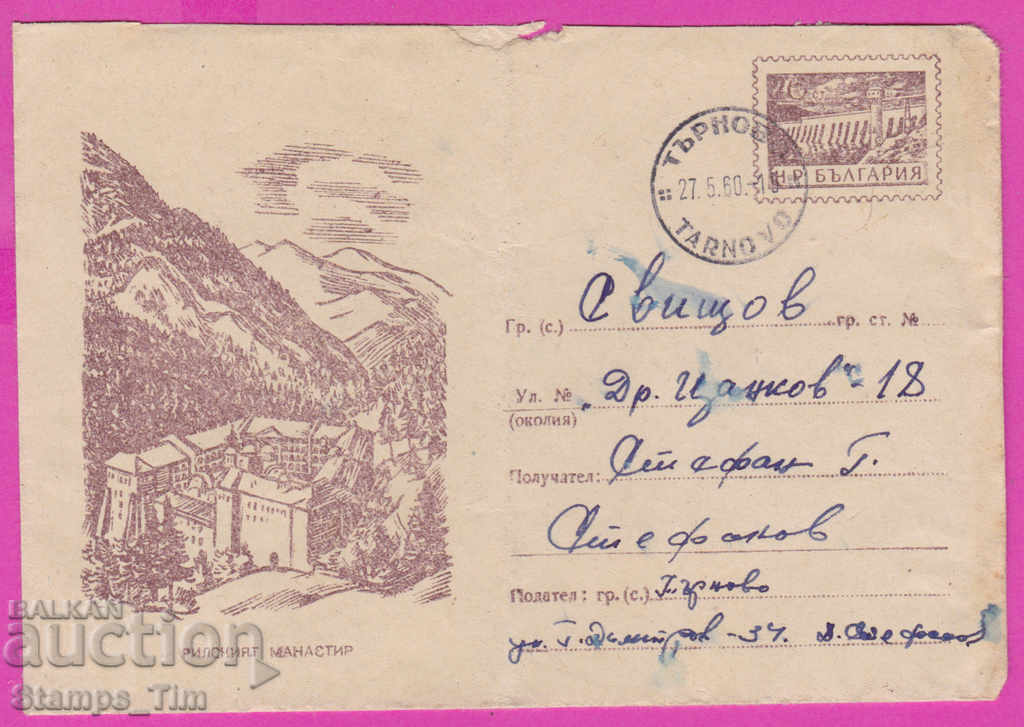 16 ст
Н.Р. БЪЛГАРИЯ
ТЪРНОВО
27.5.60.-10
TARNOVO
Гр. (с.) Свищов гр. ст. №
Ул. № „Др. Цанков“ - 18
(околия)
Получател: Стефан Г.
Стефанов
Подател: гр. (с.) Търново
ул. Г. Димитров - 34. Д. Стефанов
РИЛСКИЯТ МАНАСТИР
BALKAN
auction
Stamps_Tim